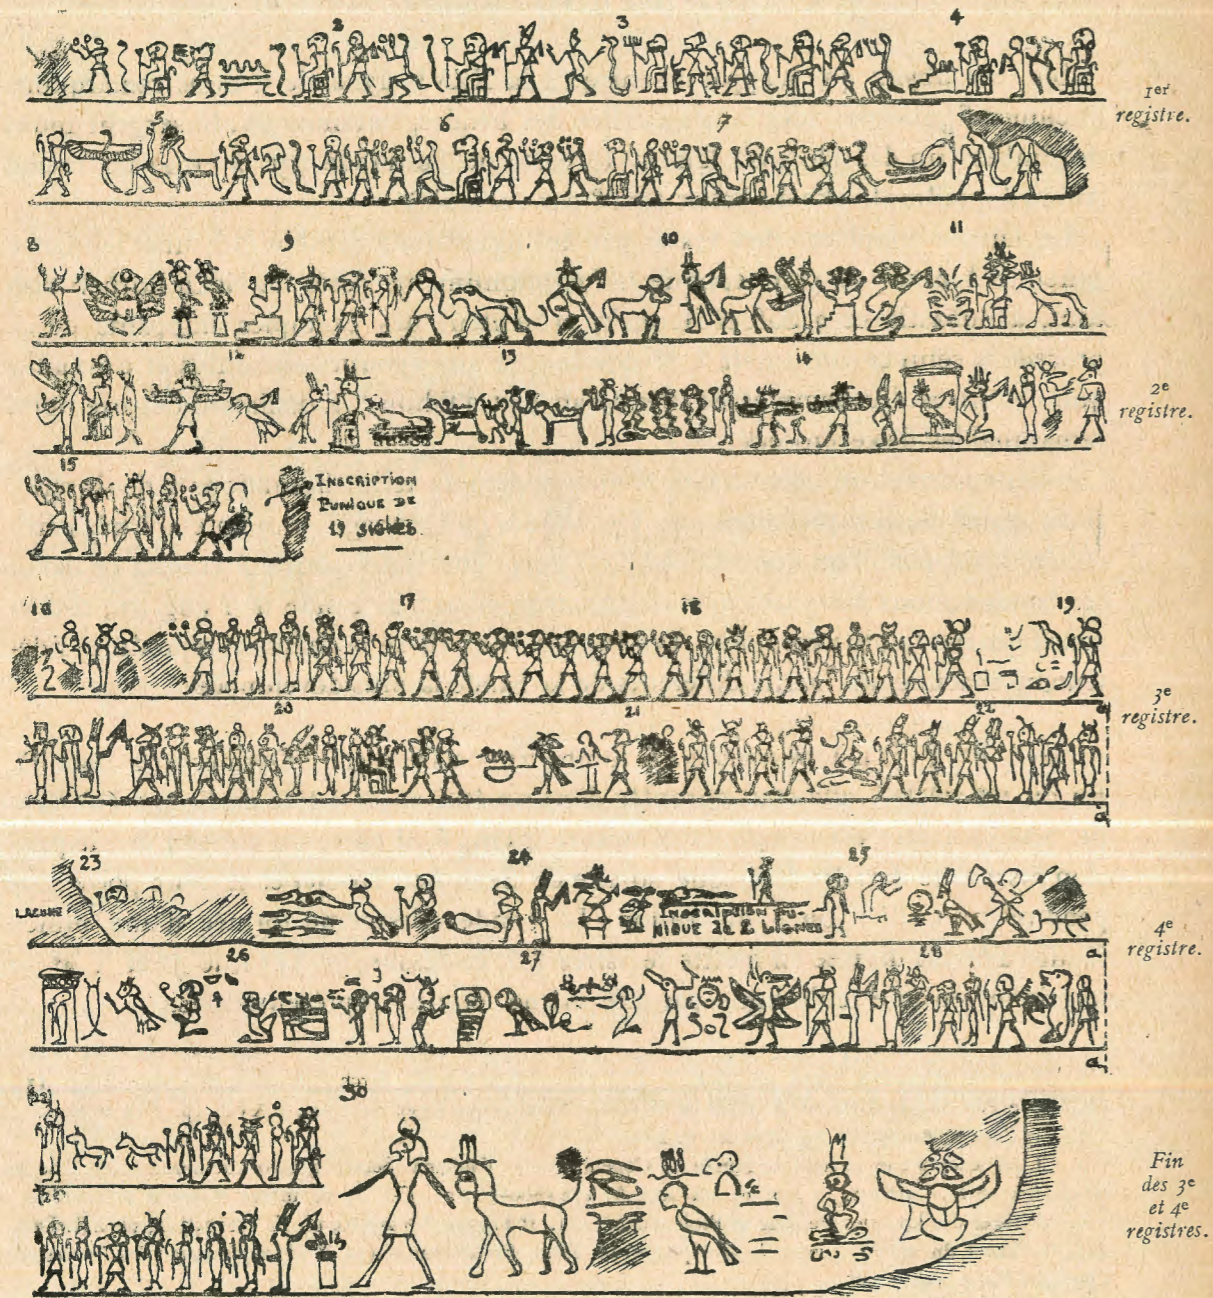 2
3
4
1er
registre.
5
6
7
8
9
10
11
12
13
14
2e
registre.
15
INSCRIPTION
PUNIQUE DE
19 SIGNES.
16
17
18
19
3e
registre.
20
21
22
a
a'
23
24
25
LACUNE
INSCRIPTION PU-
NIQUE de 2 LIGNES
4e
registre.
26
27
28
a
a'
30
Fin
des 3e
et 4e
registres.